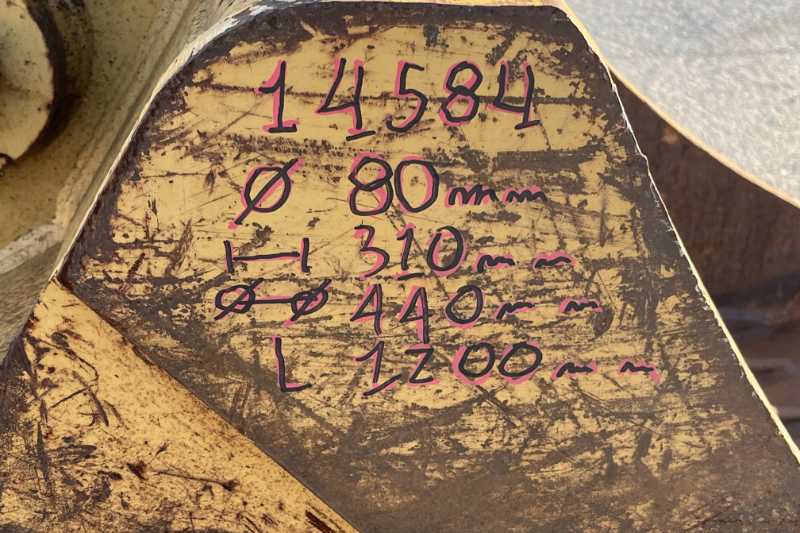 14584
Ø 80mm
|—| 310mm
Ø—Ø 440mm
L 1200mm